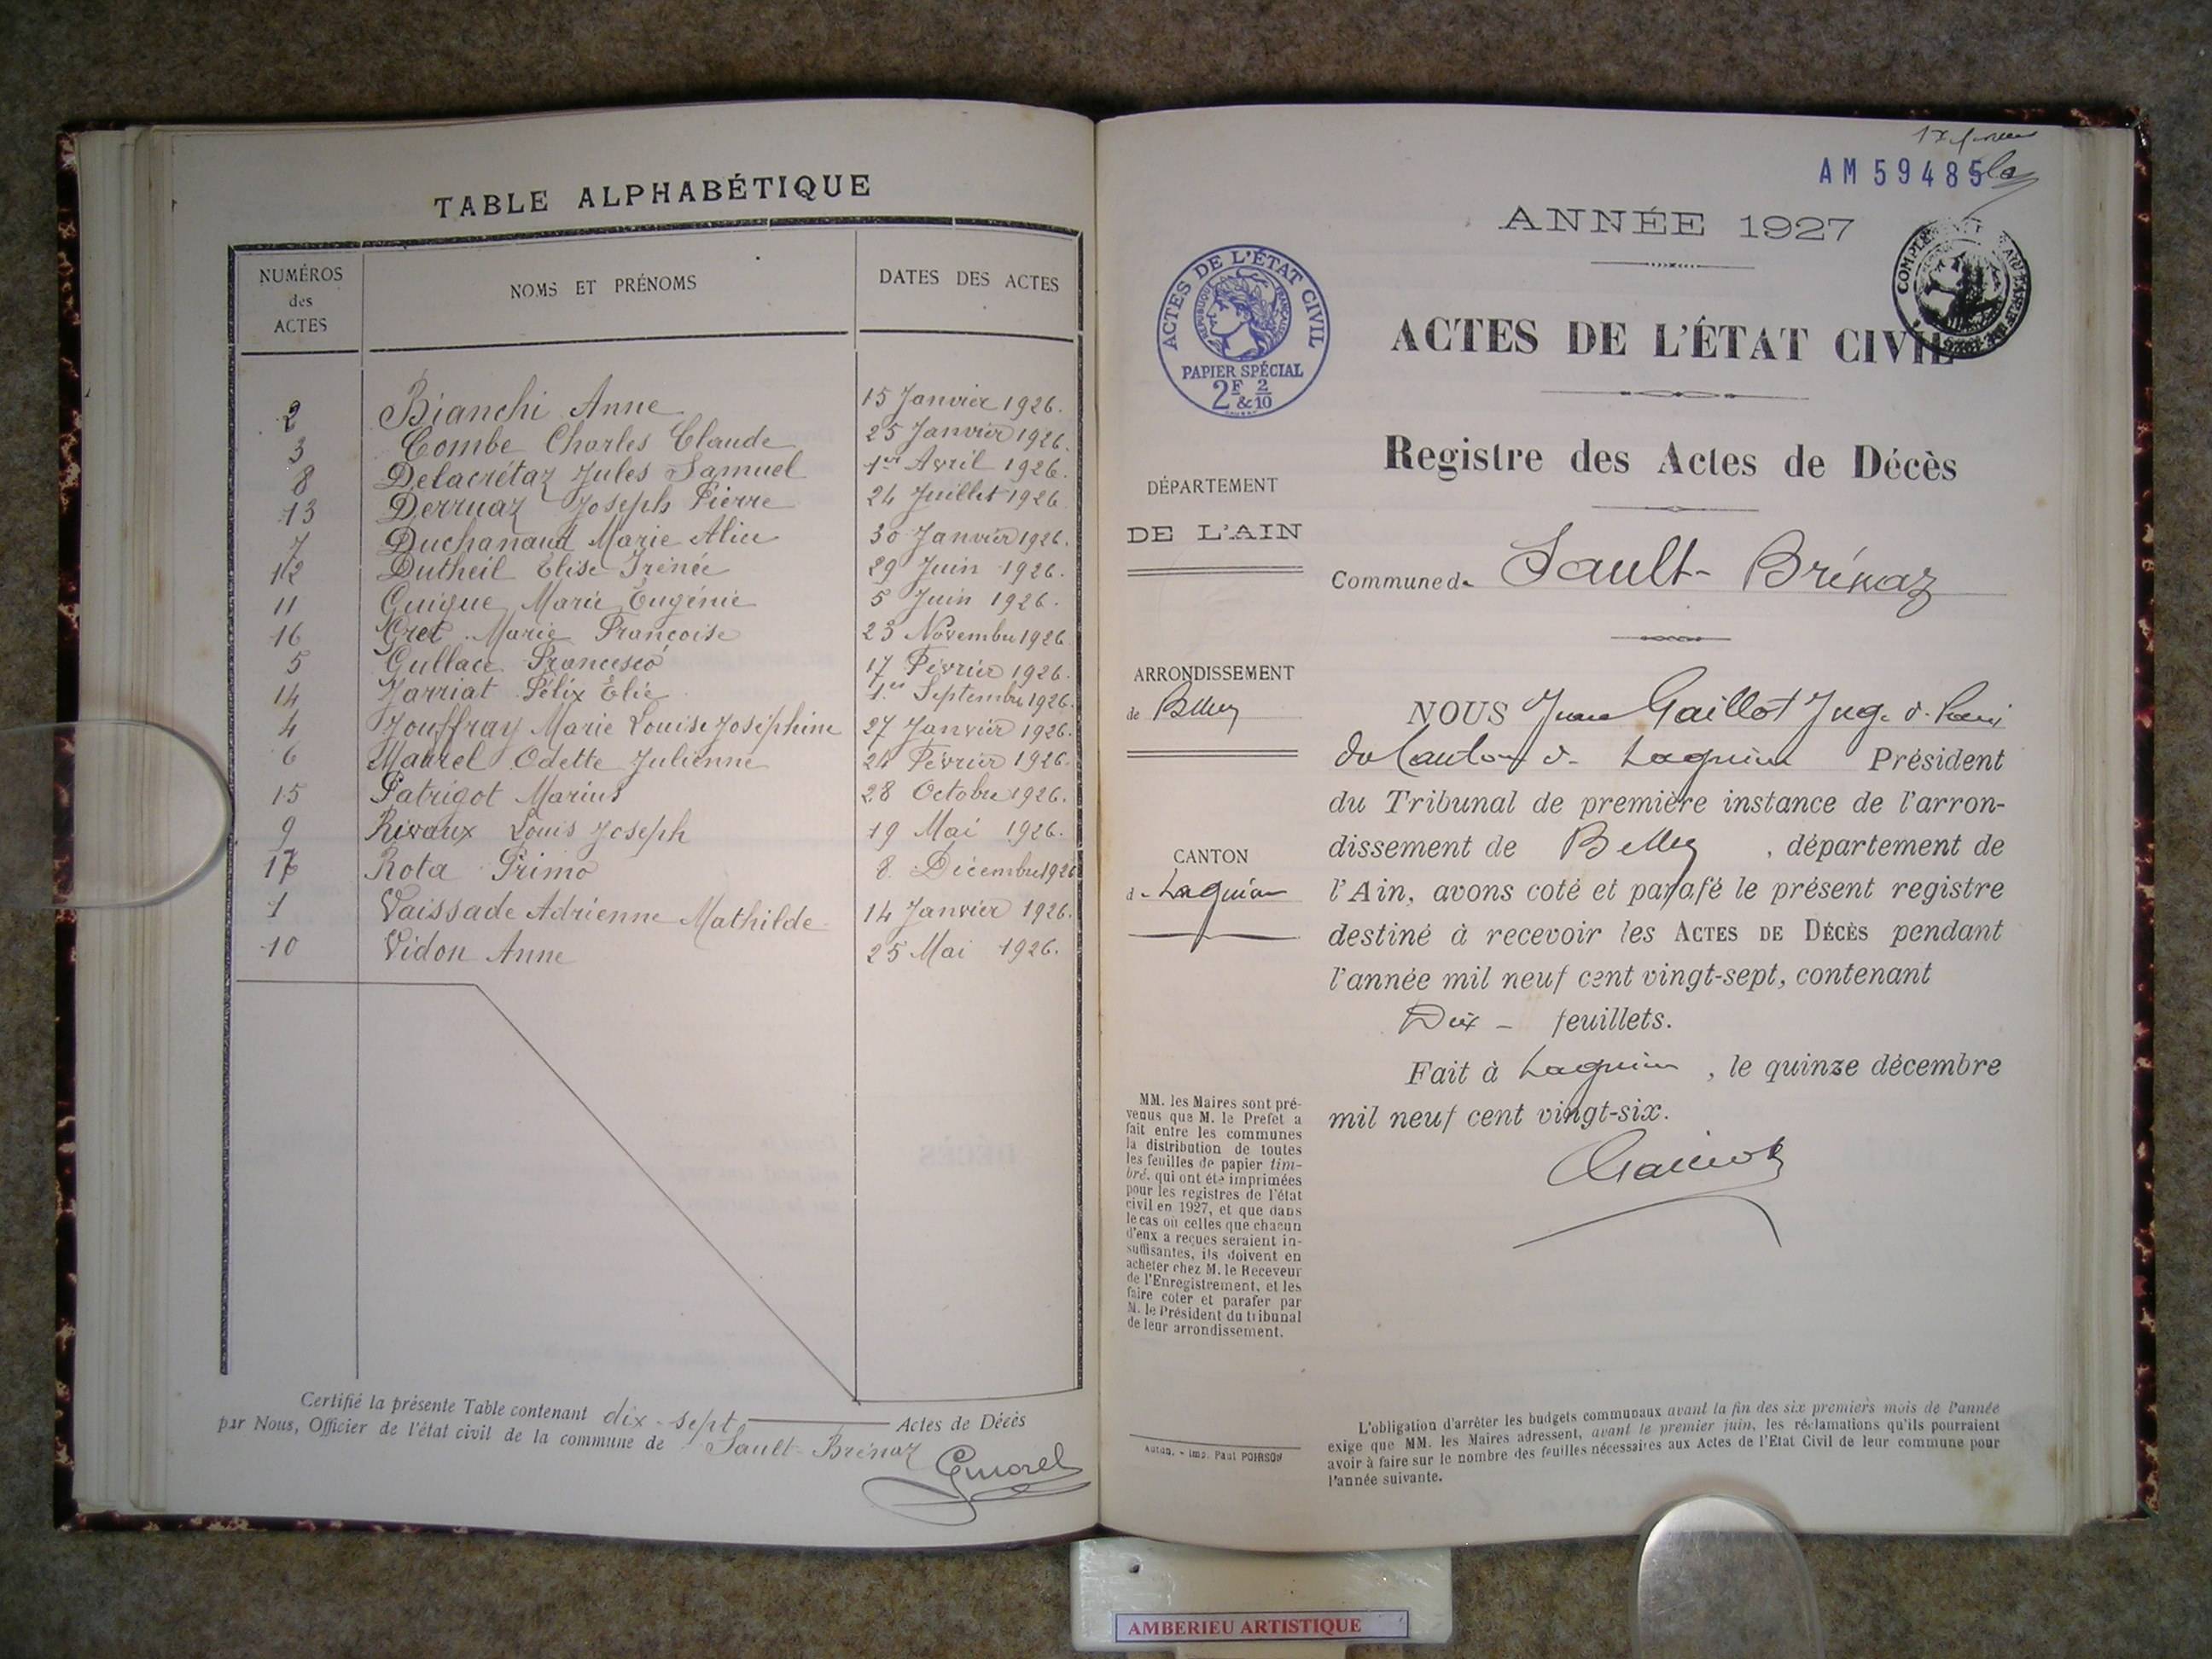 TABLE ALPHABÉTIQUE
NUMÉROS des ACTES | NOMS ET PRÉNOMS | DATES DES ACTES
2 Bianchi Anne 15 Janvier 1926.
3 Combe Charles Claude 25 Janvier 1926.
8 Delacrétaz Jules Samuel 1er Avril 1926.
13 Derruaz Joseph Pierre 24 Juillet 1926
7 Duchanaud Marie Alice 30 Janvier 1926.
12 Dutheil Élise Irénée 29 Juin 1926.
11 Guigue Marie Eugénie 5 Juin 1926.
16 Gret Marie Françoise 23 Novembre 1926
5 Gullace Francesco 17 Février 1926.
14 Jarriat Félix Élie 1er Septembre 1926.
4 Jouffray Marie Louise Joséphine 27 Janvier 1926.
6 Maurel Odette Julienne 24 Février 1926.
15 Patrigot Marius 28 Octobre 1926.
9 Rivaux Louis Joseph 19 Mai 1926.
17 Rota Primo 8 Décembre 1926
1 Vaissade Adrienne Mathilde 14 Janvier 1926.
10 Vidon Anne 25 Mai 1926.
Certifié la présente Table contenant dix-sept Actes de Décès
par Nous, Officier de l'état civil de la commune de Sault-Brénaz
AM 59485
ANNÉE 1927
ACTES DE L'ÉTAT CIVIL
RÉPUBLIQUE FRANÇAISE
PAPIER SPÉCIAL
2F & 2/10
ACTES DE L'ÉTAT CIVIL
Registre des Actes de Décès
DÉPARTEMENT
DE L'AIN
Commune de Sault-Brénaz
ARRONDISSEMENT
de Belley
CANTON
de Lagnieu
NOUS Gaillot Juge de Paix
du Canton de Lagnieu Président
du Tribunal de première instance de l'arron-
dissement de Belley, département de
l'Ain, avons coté et parafé le présent registre
destiné à recevoir les ACTES DE DÉCÈS pendant
l'année mil neuf cent vingt-sept, contenant
Dix - feuillets.
Fait à Lagnieu, le quinze décembre
mil neuf cent vingt-six.
MM. les Maires sont pré-
venus que M. le Préfet a
fait entre les communes
la distribution de toutes
les feuilles de papier tim-
bré, qui ont été imprimées
pour les registres de l'état
civil en 1927, et que dans
le cas où celles que chacun
d'eux a reçues seraient in-
suffisantes, ils doivent en
acheter chez M. le Receveur
de l'Enregistrement, et les
faire coter et parafer par
M. le Président du tribunal
de leur arrondissement.
Autun. - Imp. Paul POIRSON
L'obligation d'arrêter les budgets communaux avant la fin des six premiers mois de l'année
exige que MM. les Maires adressent, avant le premier juin, les réclamations qu'ils pourraient
avoir à faire sur le nombre des feuilles nécessaires aux Actes de l'Etat Civil de leur commune pour
l'année suivante.
AMBERIEU ARTISTIQUE